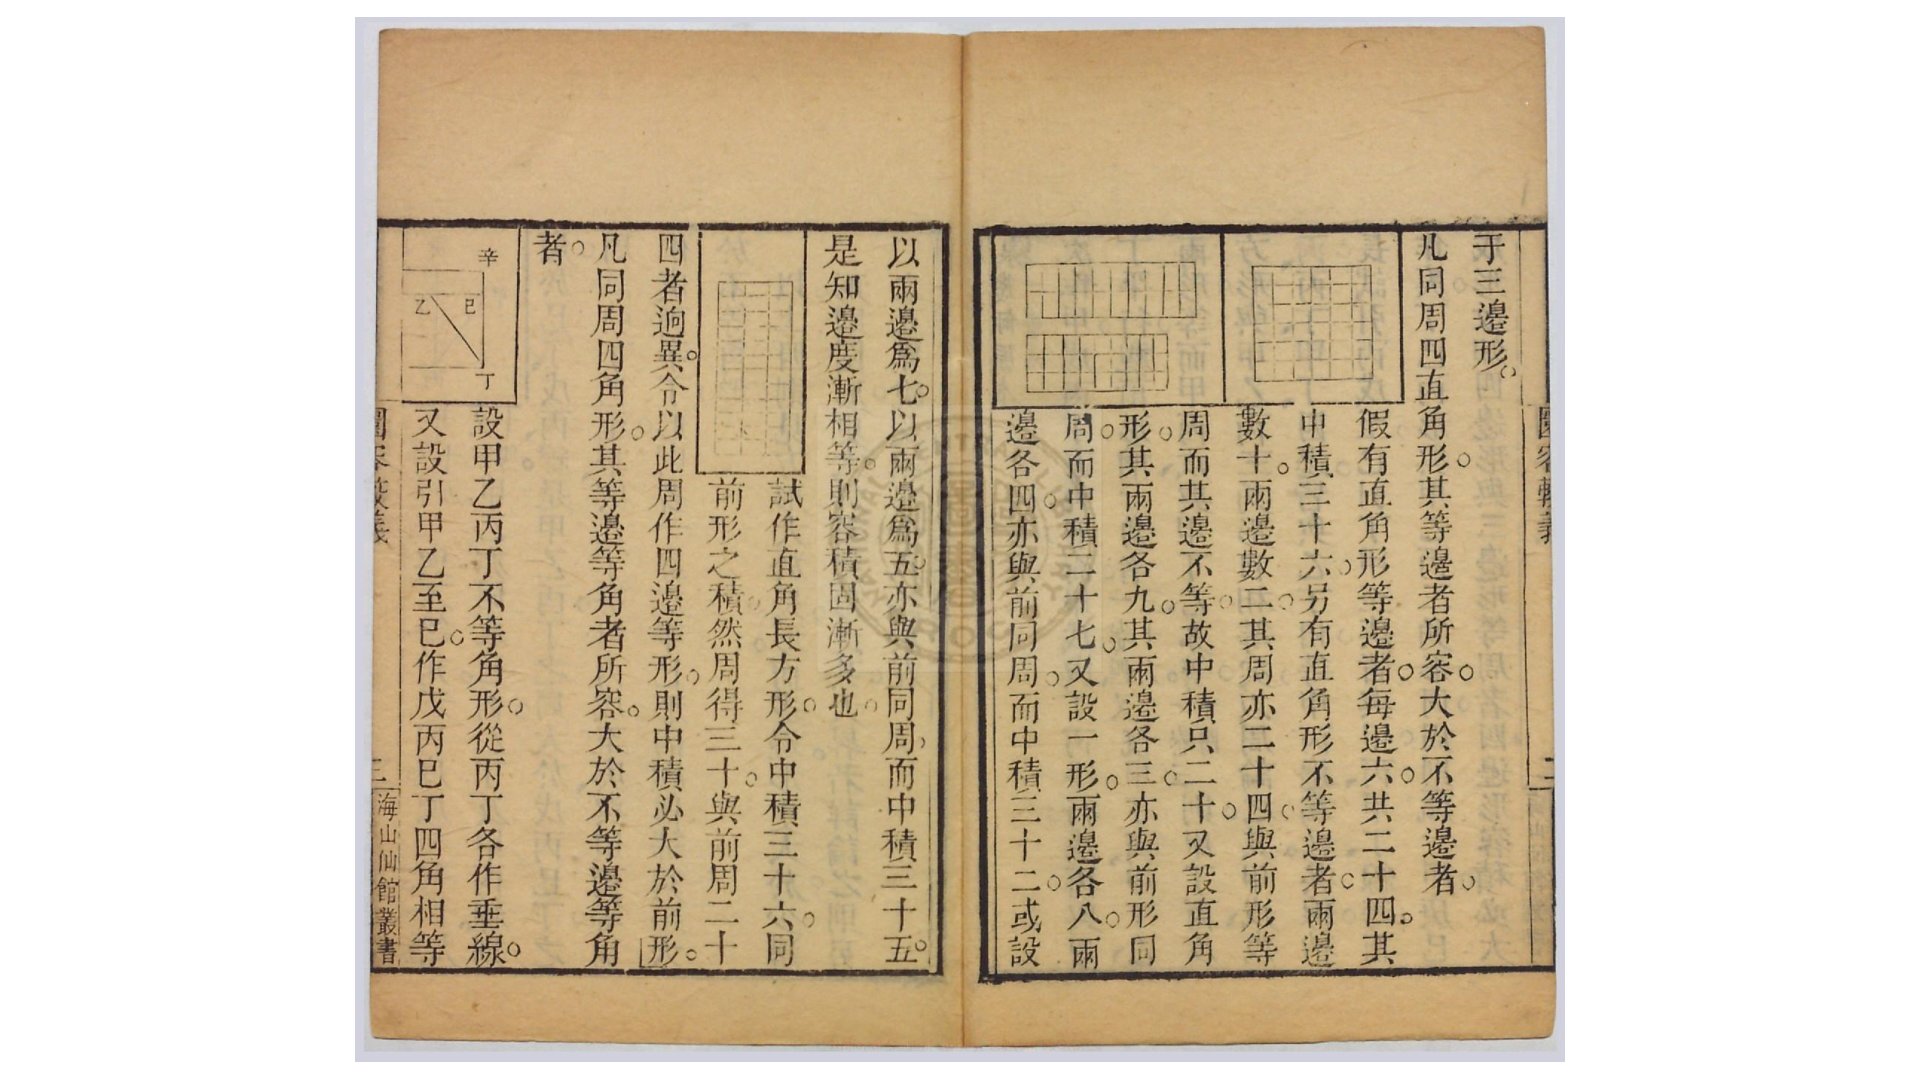 于三邊形。
凡同周四直角形。其等邊者所容。大於不等邊者。
假有直角形等邊者。每邊六。共二十四。其
中積三十六。另有直角形不等邊者。兩邊
數十。兩邊數二。其周亦二十四。與前形等
周而其邊不等。故中積只二十。又設直角
形。其兩邊各九。其兩邊各三。亦與前形同
周。而中積二十七。又設一形。兩邊各八。兩
邊各四。亦與前同周。而中積三十二。或設
以兩邊爲七。以兩邊爲五。亦與前同周。而中積三十五。
是知邊度漸相等。則容積固漸多也。
試作直角長方形。令中積三十六。同
前形之積。然周得三十。與前周二十
四者逈異。今以此周作四邊等形。則中積必大於前形。
凡同周四角形。其等邊等角者所容。大於不等邊等角
者。
辛
乙
巳
丁
設甲乙丙丁不等角形。從丙丁各作垂線。
又設引甲乙至巳。作戊丙巳丁四角相等
圜容較義
二
三
海山仙館叢書